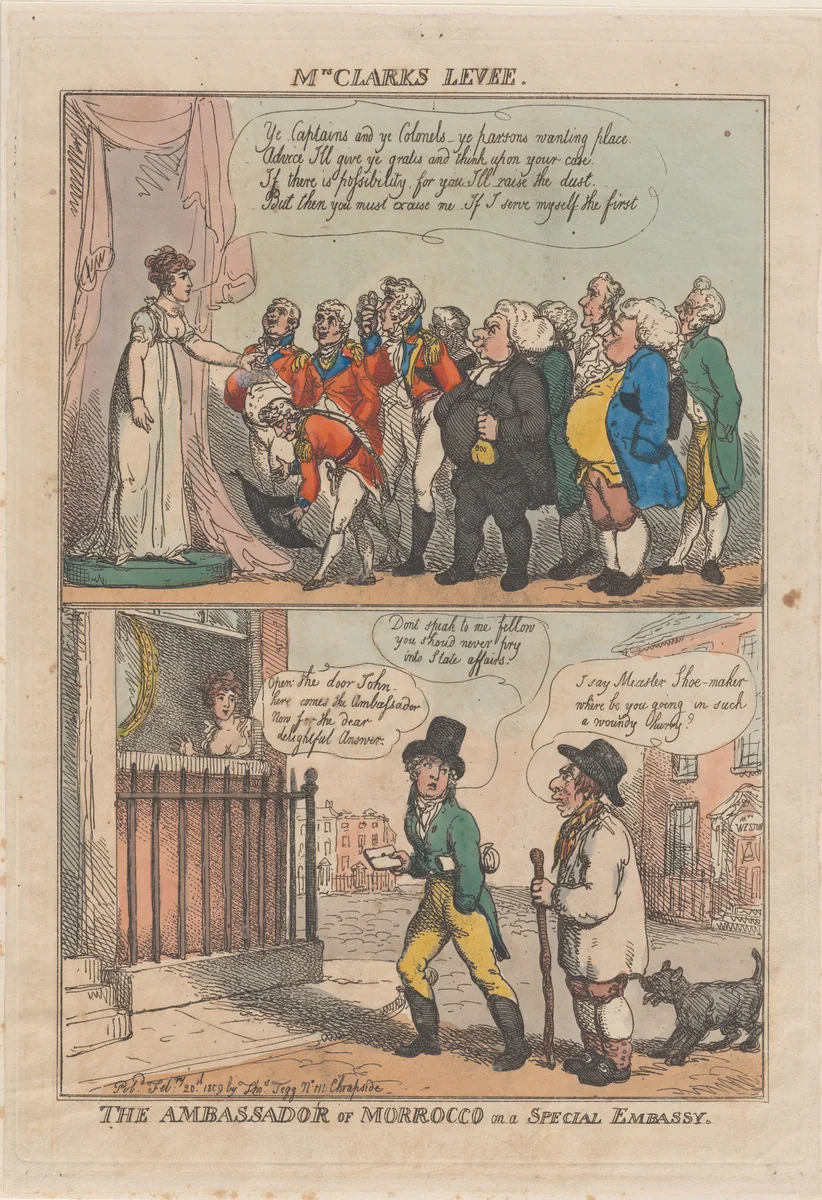 Mrs CLARKS LEVEE.
Ye Captains and ye Colonels - ye parsons wanting place.
Advice I'll give ye gratis and think upon your case.
If there is possibility, for you I'll raise the dust.
But then you must excuse me - If I serve myself the first
800
Dont speak to me fellow
you shoud never pry
into State affairs.
Open the door John
here comes the Ambassador
Now for the dear
delightful Answer.
I say Measter Shoe-maker
where be you going in such
a woundy hurry?
Mrs
WESTON
Pubd. Feby. 20d 1809 by Thos Tegg No 111 Cheapside
THE AMBASSADOR OF MORROCCO on a SPECIAL EMBASSY.